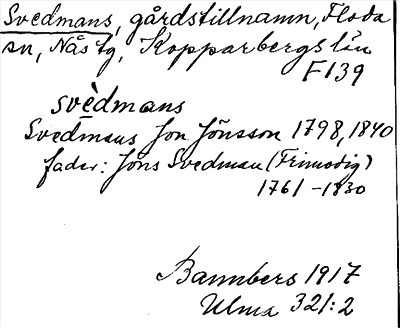 Svedmans, gårdstillnamn, Floda
sn, Nås tg, Kopparbergs län
F139
svèdmans
Svedmans Jon Jönsson 1798, 1840
fader: Jöns Svedman (Frimodig)
1761-1830
Bannbers 1917
Ulma 321:2